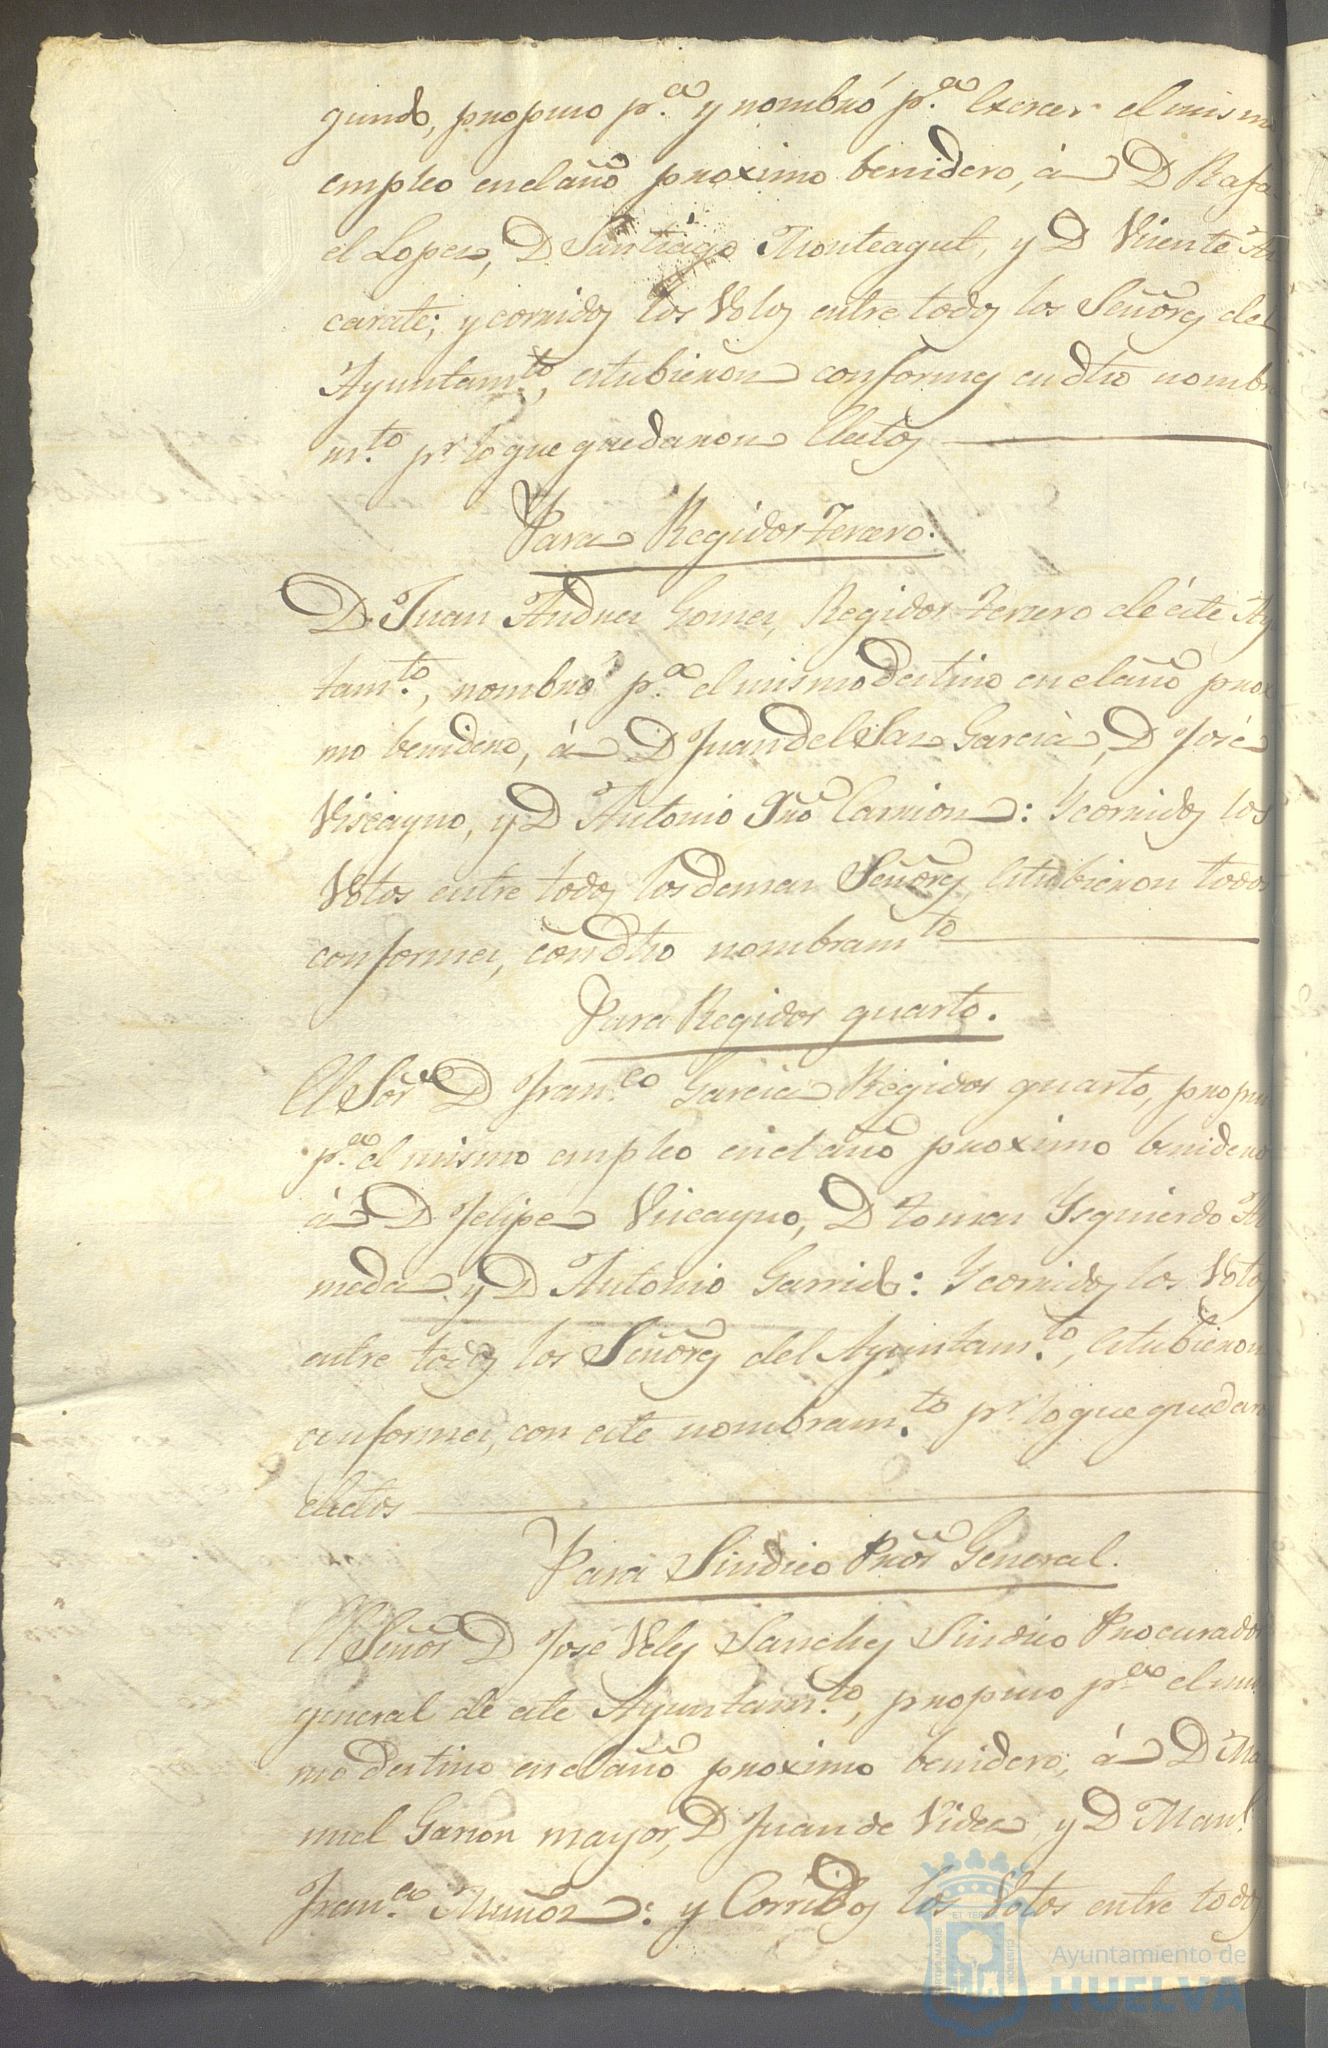 gundo, propuso pr.ª y nombró pr.ª Exercer el mismo
empleo en el año proximo benidero, á D Rafa
el Lopez, D Santiago Monteagut, y D Vicente
carate; y corridos los Votos entre todos los Señores del
Ayuntam.to, estubieron conformes en dho nombra
m.to pr lo que quedaron Electos
Para Regidor Tercero.
D. Juan Andres Gomez, Regidor Tercero de éste Ay
tam.to, nombró pr.ª el mismo destino en el año proxi
mo benidero, á D Juan del Saz Garcia, D José
Viscayno, y D Antonio Jno Carrion: Y corridos los
Votos entre todos los demas Señores Estubieron todos
conformes, con dho nombram.to
Para Regidor quarto.
El Sor D Fran.co Garcia Regidor quarto, propuso
pª el mismo empleo en el año proximo benidero
á D Felipe Viscayno, D tomas Ysquierdo
meda y D Antonio Garrido: Y corridos los Votos
entre todos los Señores del Ayuntam.to, Estubieron
conformes, con este nombram.to pr lo que quedaron
electos
Para Sindico Pror General.
El Señor D José Velez Sanchez Sindico Procurador
general de este Ayuntam.to, propuso pr.ª el mis
mo destino en el año proximo benidero, á D Ma
nuel Garzon mayor, D Juan de Vides y D Man.l
Fran.co Muñoz: y Corridos los Votos entre todos
Ayuntamiento de
HUELVA